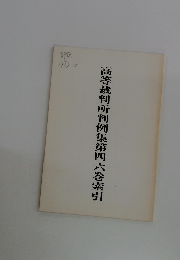 高等裁判所判例集第四六巻索引